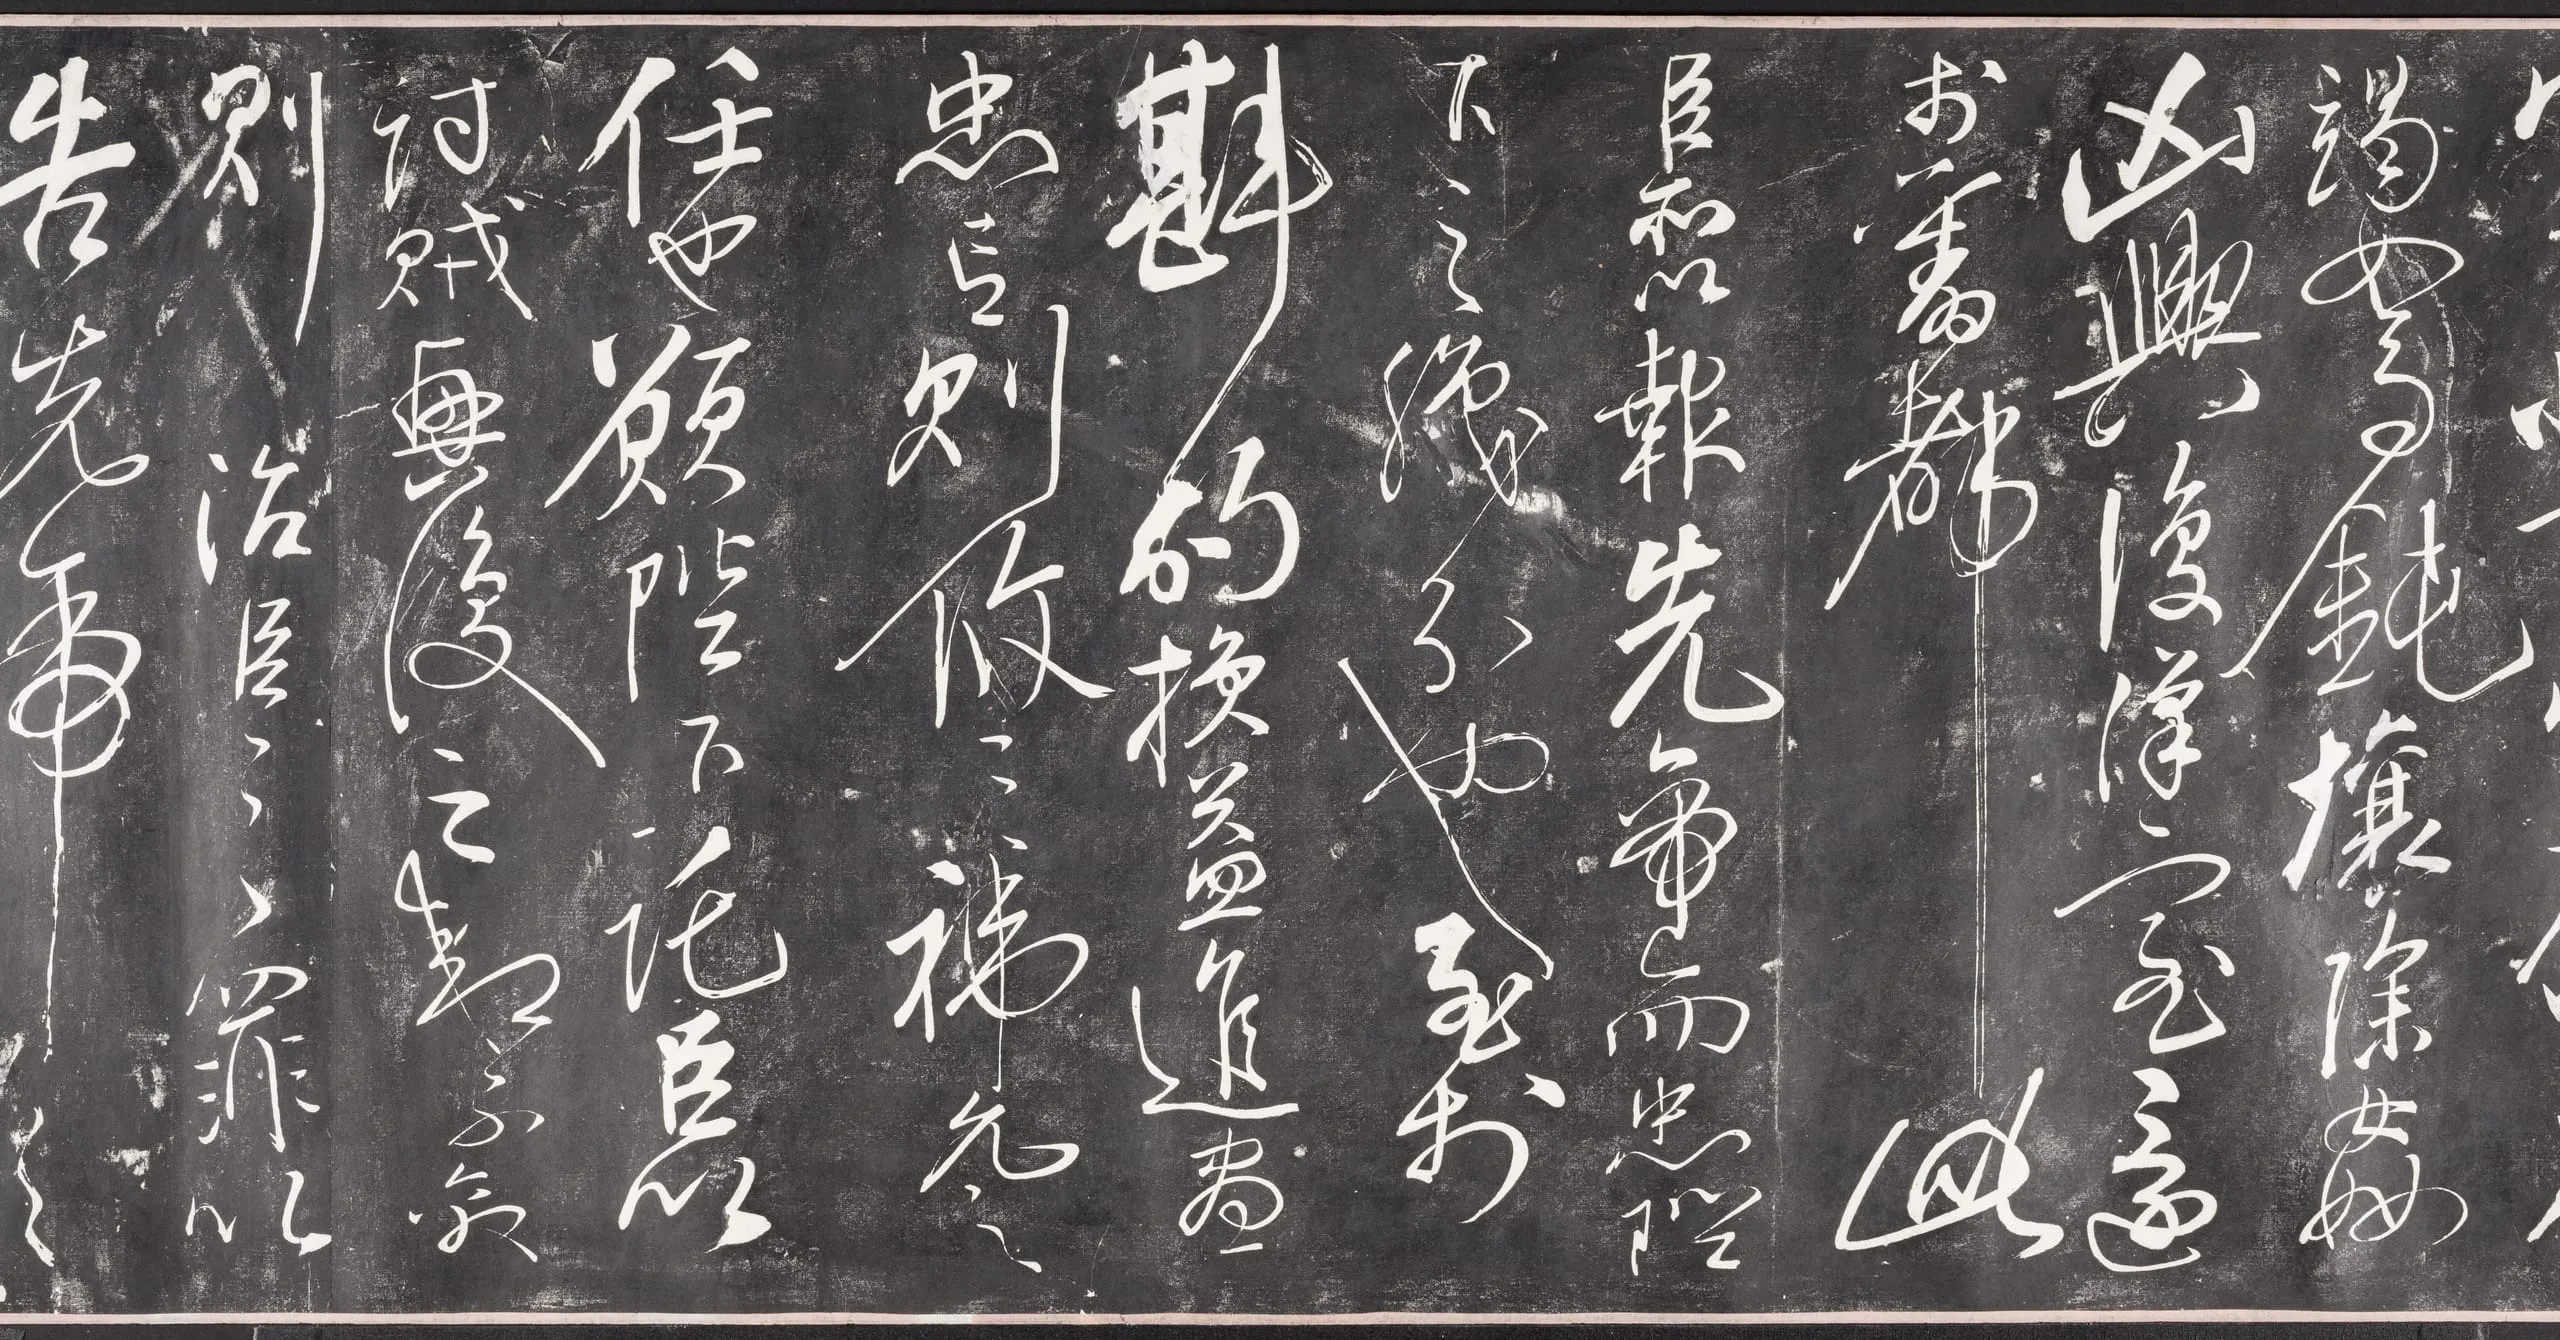 竭駑鈍攘除姦
凶興復漢室還
於舊都此
臣所以報先帝而忠陛
下之職分也至於
斟酌損益進盡
忠言則攸之禕允之
任也願陛下託臣以
討賊興復之效不效
則治臣之罪以
告先帝之